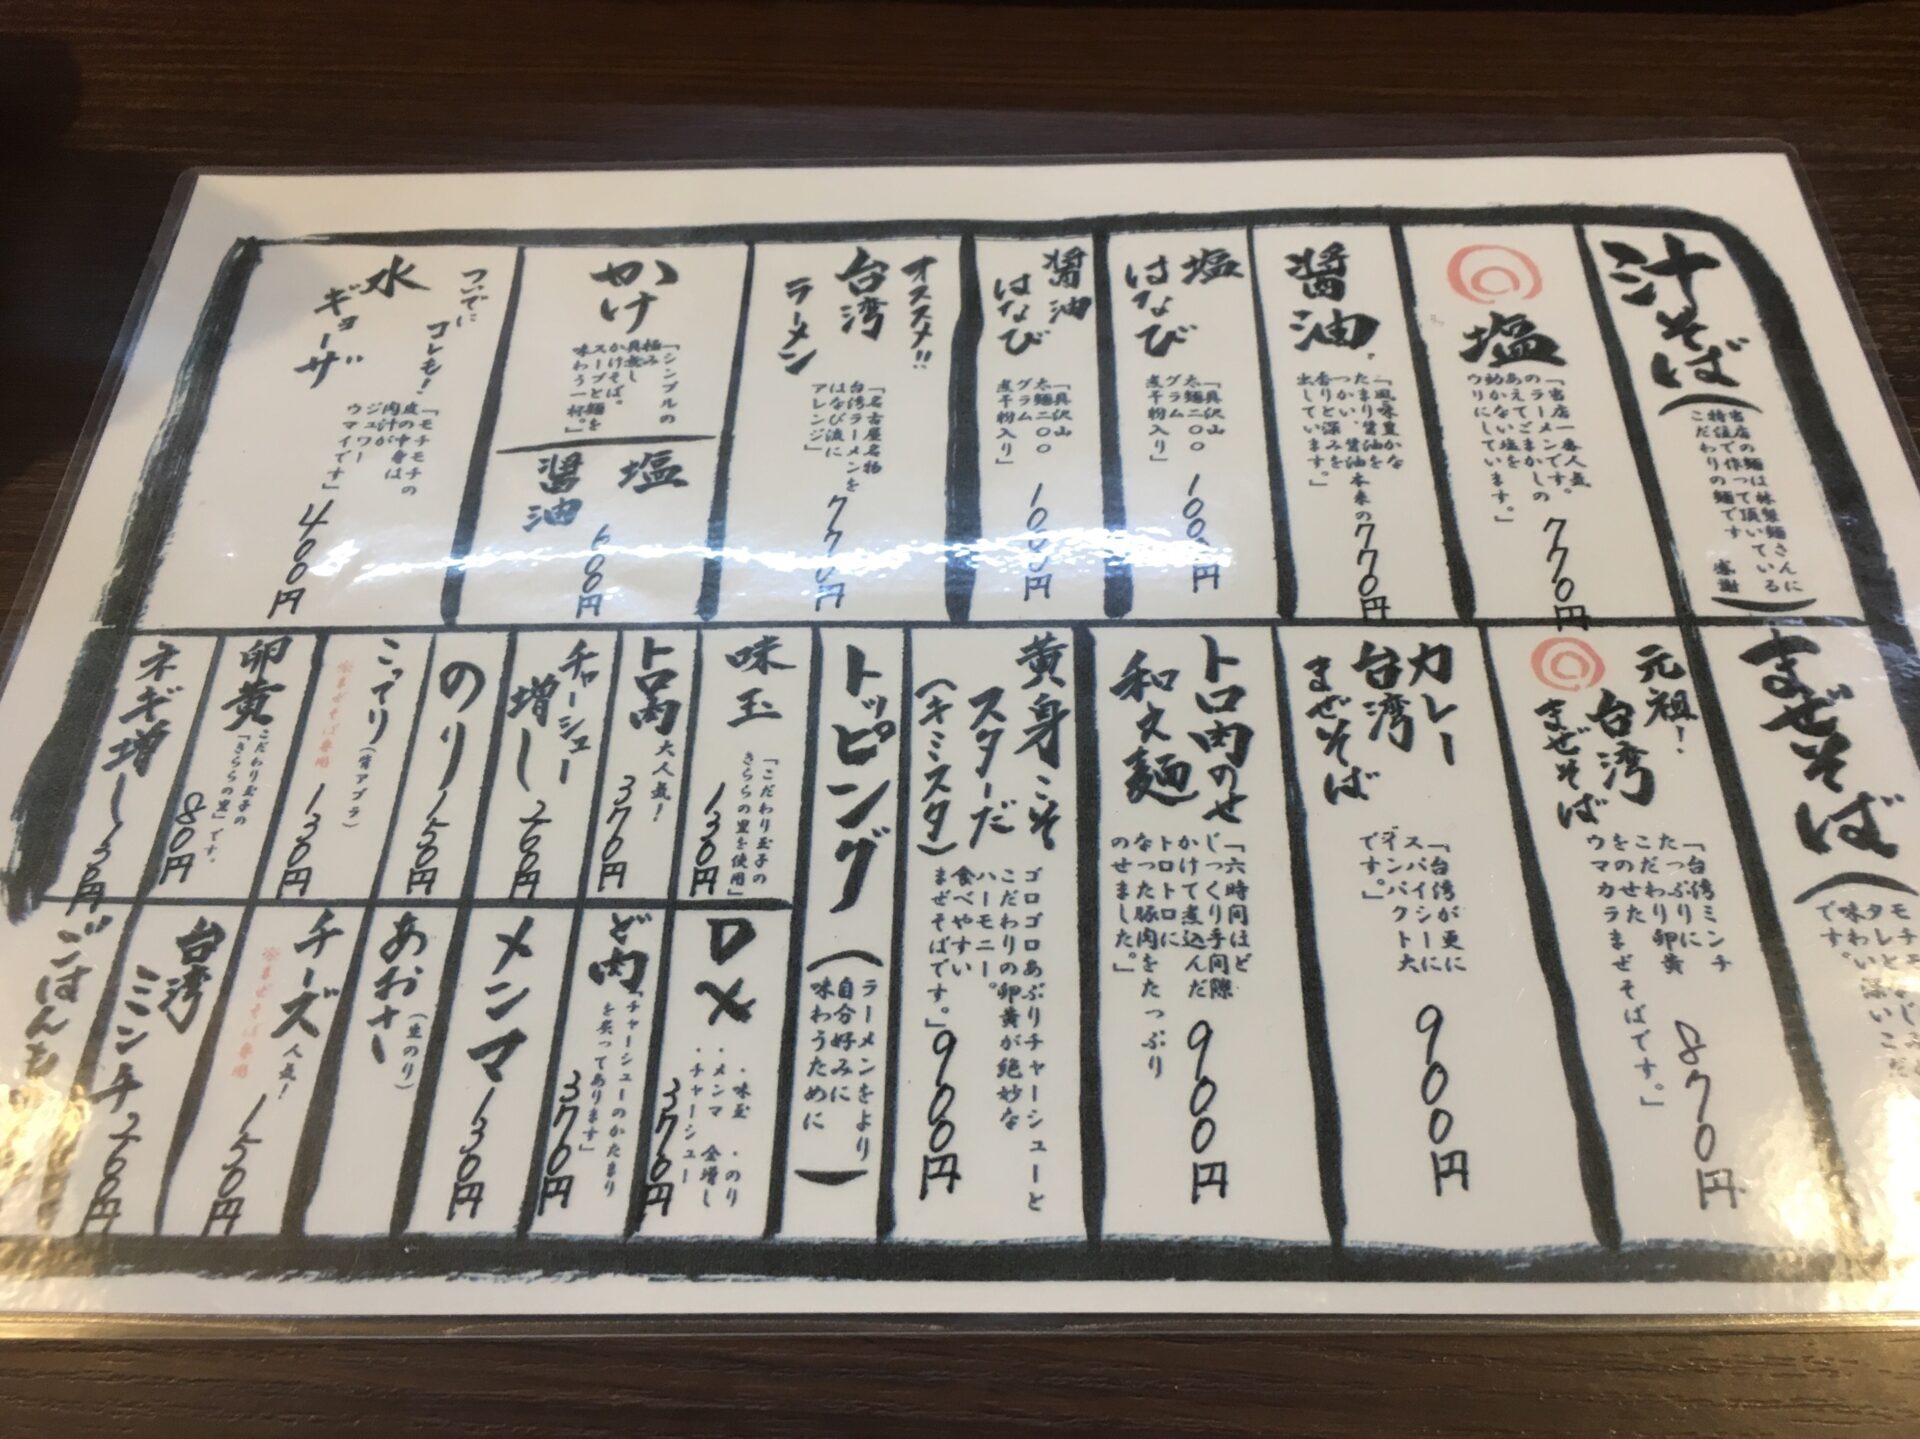 汁そば
(当店の麺は林製麺さんに
特注で作って頂いている
こだわりの麺です 感謝)
塩
「当店一番人気
のラーメンです。
あえてごまかしの
効かない塩を
ウリにしています。」
770円
醤油
「風味豊かな
たまり醤油を
つかい、醤油本来の
香りと深みを
出しています。」
770円
塩
はなび
「具沢山
太麺二〇〇
グラム
煮干粉入り」
1000円
醤油
はなび
「具沢山
太麺二〇〇
グラム
煮干粉入り」
1000円
オススメ!!
台湾
ラーメン
「名古屋名物
台湾ラーメンを
はなび流に
アレンジ」
770円
かけ
「シンプルの
極み
具無し
かけそば。
スープと麺を
味わう一杯。」
塩
醤油
600円
ついでに
コレも!
水
ギョーザ
「モチモチの
皮の中身は
肉汁が
ジュワー
ウマイです」
400円
まぜそば
元祖!
台湾
まぜそば
「台湾ミンチ
たっぷりに
こだわり卵黄
をのせた
ウマカラまぜそばです。」
870円
カレー
台湾
まぜそば
「台湾が更に
スパイシーに
インパクト大
です。」
900円
トロ肉のせ
和え麺
「六時間ほど
じっくり手間隙
かけて煮込んだ
トロトロに
なった豚肉をたっぷり
のせました。」
900円
黄身こそ
スターだ
(キミスタ)
ゴロゴロあぶりチャーシューと
こだわりの卵黄が絶妙な
ハーモニー。
食べやすい
まぜそばです。」
900円
トッピング
(ラーメンをより
自分好みに
味わうために)
味玉
「こだわり玉子の
きららの里を使用」
130円
トロ肉
大人気!
370円
チャーシュー
増し
200円
のり
150円
こってり
(背アブラ)
※まぜそば専用
130円
卵黄
こだわり玉子の
「きららの里」です。
80円
ネギ増し
130円
DX
・味玉 ・のり
・メンマ 全増し
・チャーシュー
370円
ど肉
「チャーシューのかたまり
を炙ってあります」
370円
メンマ
130円
あおさ
(生のり)
チーズ
人気!
※まぜそば専用
150円
台湾
ミンチ
200円
ごはんも